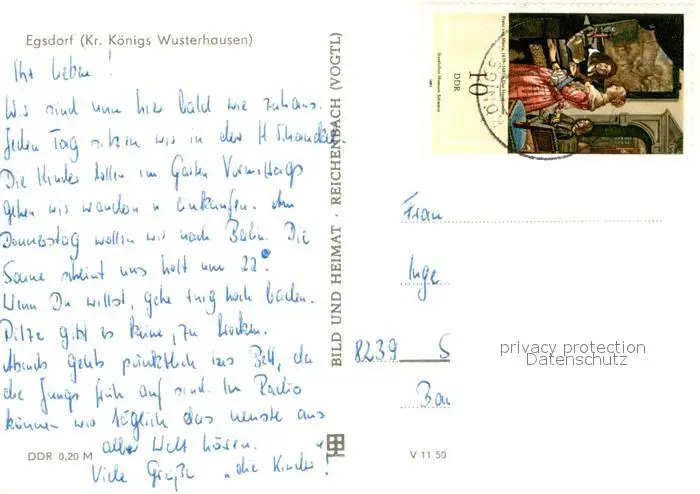 Egsdorf (Kr. Königs Wusterhausen)
Ihr Lieben!
Wir sind nun hier bald wie zuhaus.
Jeden Tag sitzen wir in der
Die Kinder tollen im Garten Vormittags
gehen wir wandern u einkaufen. Am
Donnerstag wollen wir nach Berlin. Die
Sonne scheint uns holt nur 22°
Wenn Du willst, gehe ruhig noch baden.
Pilze gibt es keine, zu trocken.
Abends gehts pünktlich ins Bett, da
die Jungs früh auf sind. Im Radio
können wir täglich das neuste aus
aller Welt hören.
Viele Grüße "die Kinder"!
DDR 0,20 M
BILD UND HEIMAT · REICHENBACH (VOGTL)
V 11 50
DDR
10
Frau
Inge
8239 S
Bau
privacy protection
Datenschutz